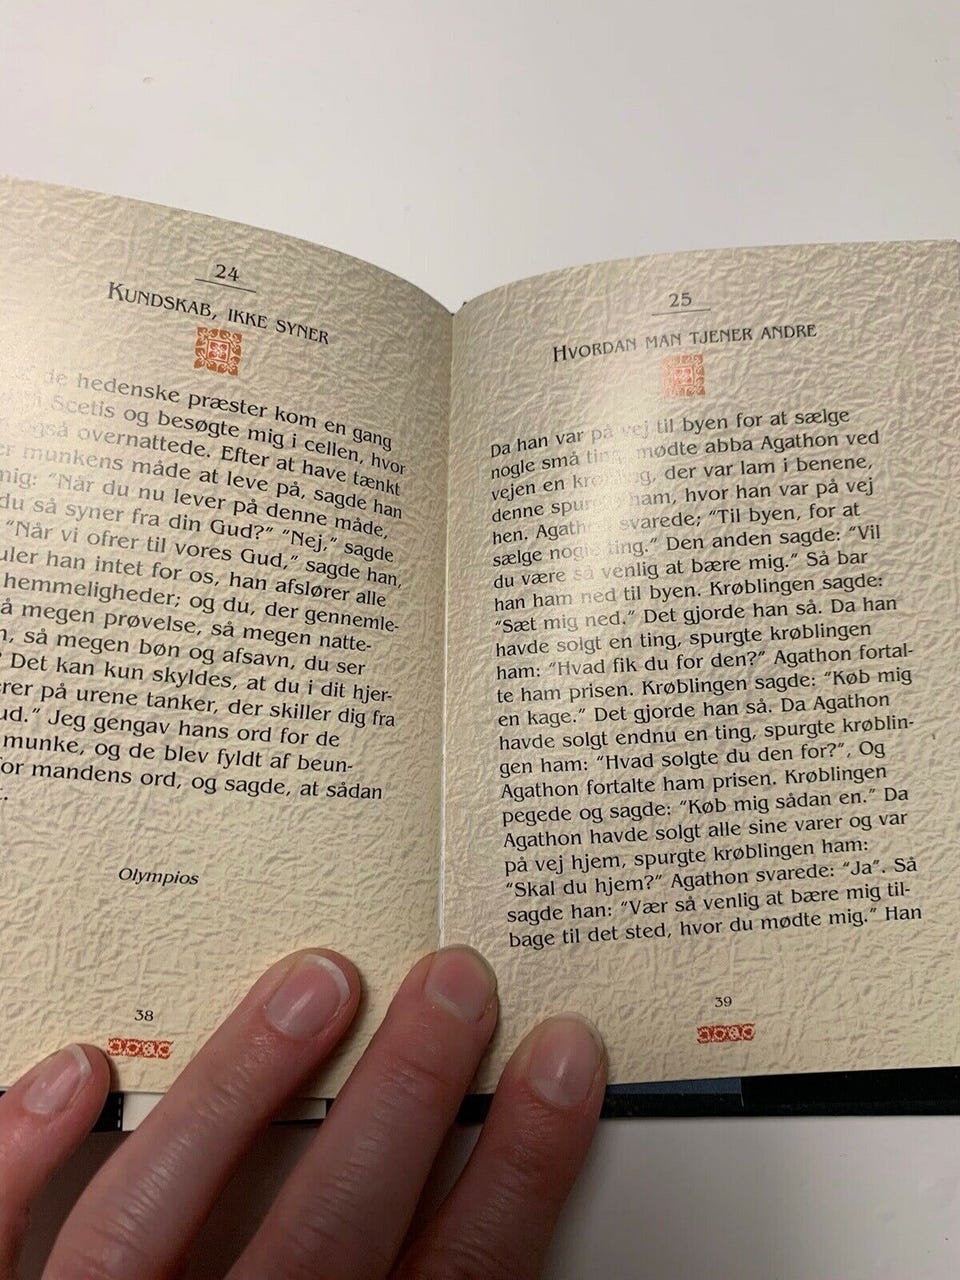 24
KUNDSKAB, IKKE SYNER
de hedenske præster kom en gang
Scetis og besøgte mig i cellen, hvor
også overnattede. Efter at have tænkt
munkens måde at leve på, sagde han
mig: "Når du nu lever på denne måde,
du så syner fra din Gud?" "Nej," sagde
"Når vi ofrer til vores Gud," sagde han,
han intet for os, han afslører alle
hemmeligheder; og du, der gennemle-
megen prøvelse, så megen natte-
så megen bøn og afsavn, du ser
Det kan kun skyldes, at du i dit hjer-
på urene tanker, der skiller dig fra
Jeg gengav hans ord for de
munke, og de blev fyldt af beun-
mandens ord, og sagde, at sådan
Olympios
38
25
HVORDAN MAN TJENER ANDRE
Da han var på vej til byen for at sælge
nogle små ting, mødte abba Agathon ved
vejen en der var lam i benene,
denne ham, hvor han var på vej
hen. svarede; "Til byen, for at
sælge nogle ting." Den anden sagde: "Vil
du være så venlig at bære mig." Så bar
han ham ned til byen. Krøblingen sagde:
"Sæt mig ned." Det gjorde han så. Da han
havde solgt en ting, spurgte krøblingen
ham: "Hvad fik du for den?" Agathon fortal-
te ham prisen. Krøblingen sagde: "Køb mig
en kage." Det gjorde han så. Da Agathon
havde solgt endnu en ting, spurgte krøblin-
gen ham: "Hvad solgte du den for?", Og
Agathon fortalte ham prisen. Krøblingen
pegede og sagde: "Køb mig sådan en." Da
Agathon havde solgt alle sine varer og var
på vej hjem, spurgte krøblingen ham:
"Skal du hjem?" Agathon svarede: "Ja". Så
sagde han: "Vær så venlig at bære mig til-
bage til det sted, hvor du mødte mig." Han
39